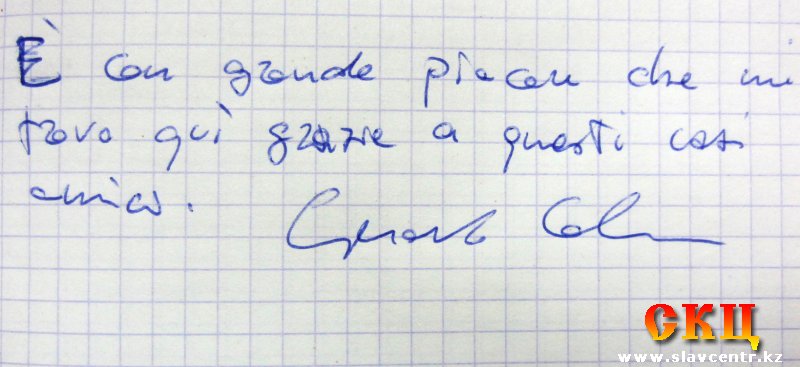 È con grande piacere che mi
trovo qui grazie a questi cari
amici.
СКЦ
www.slavcentr.kz